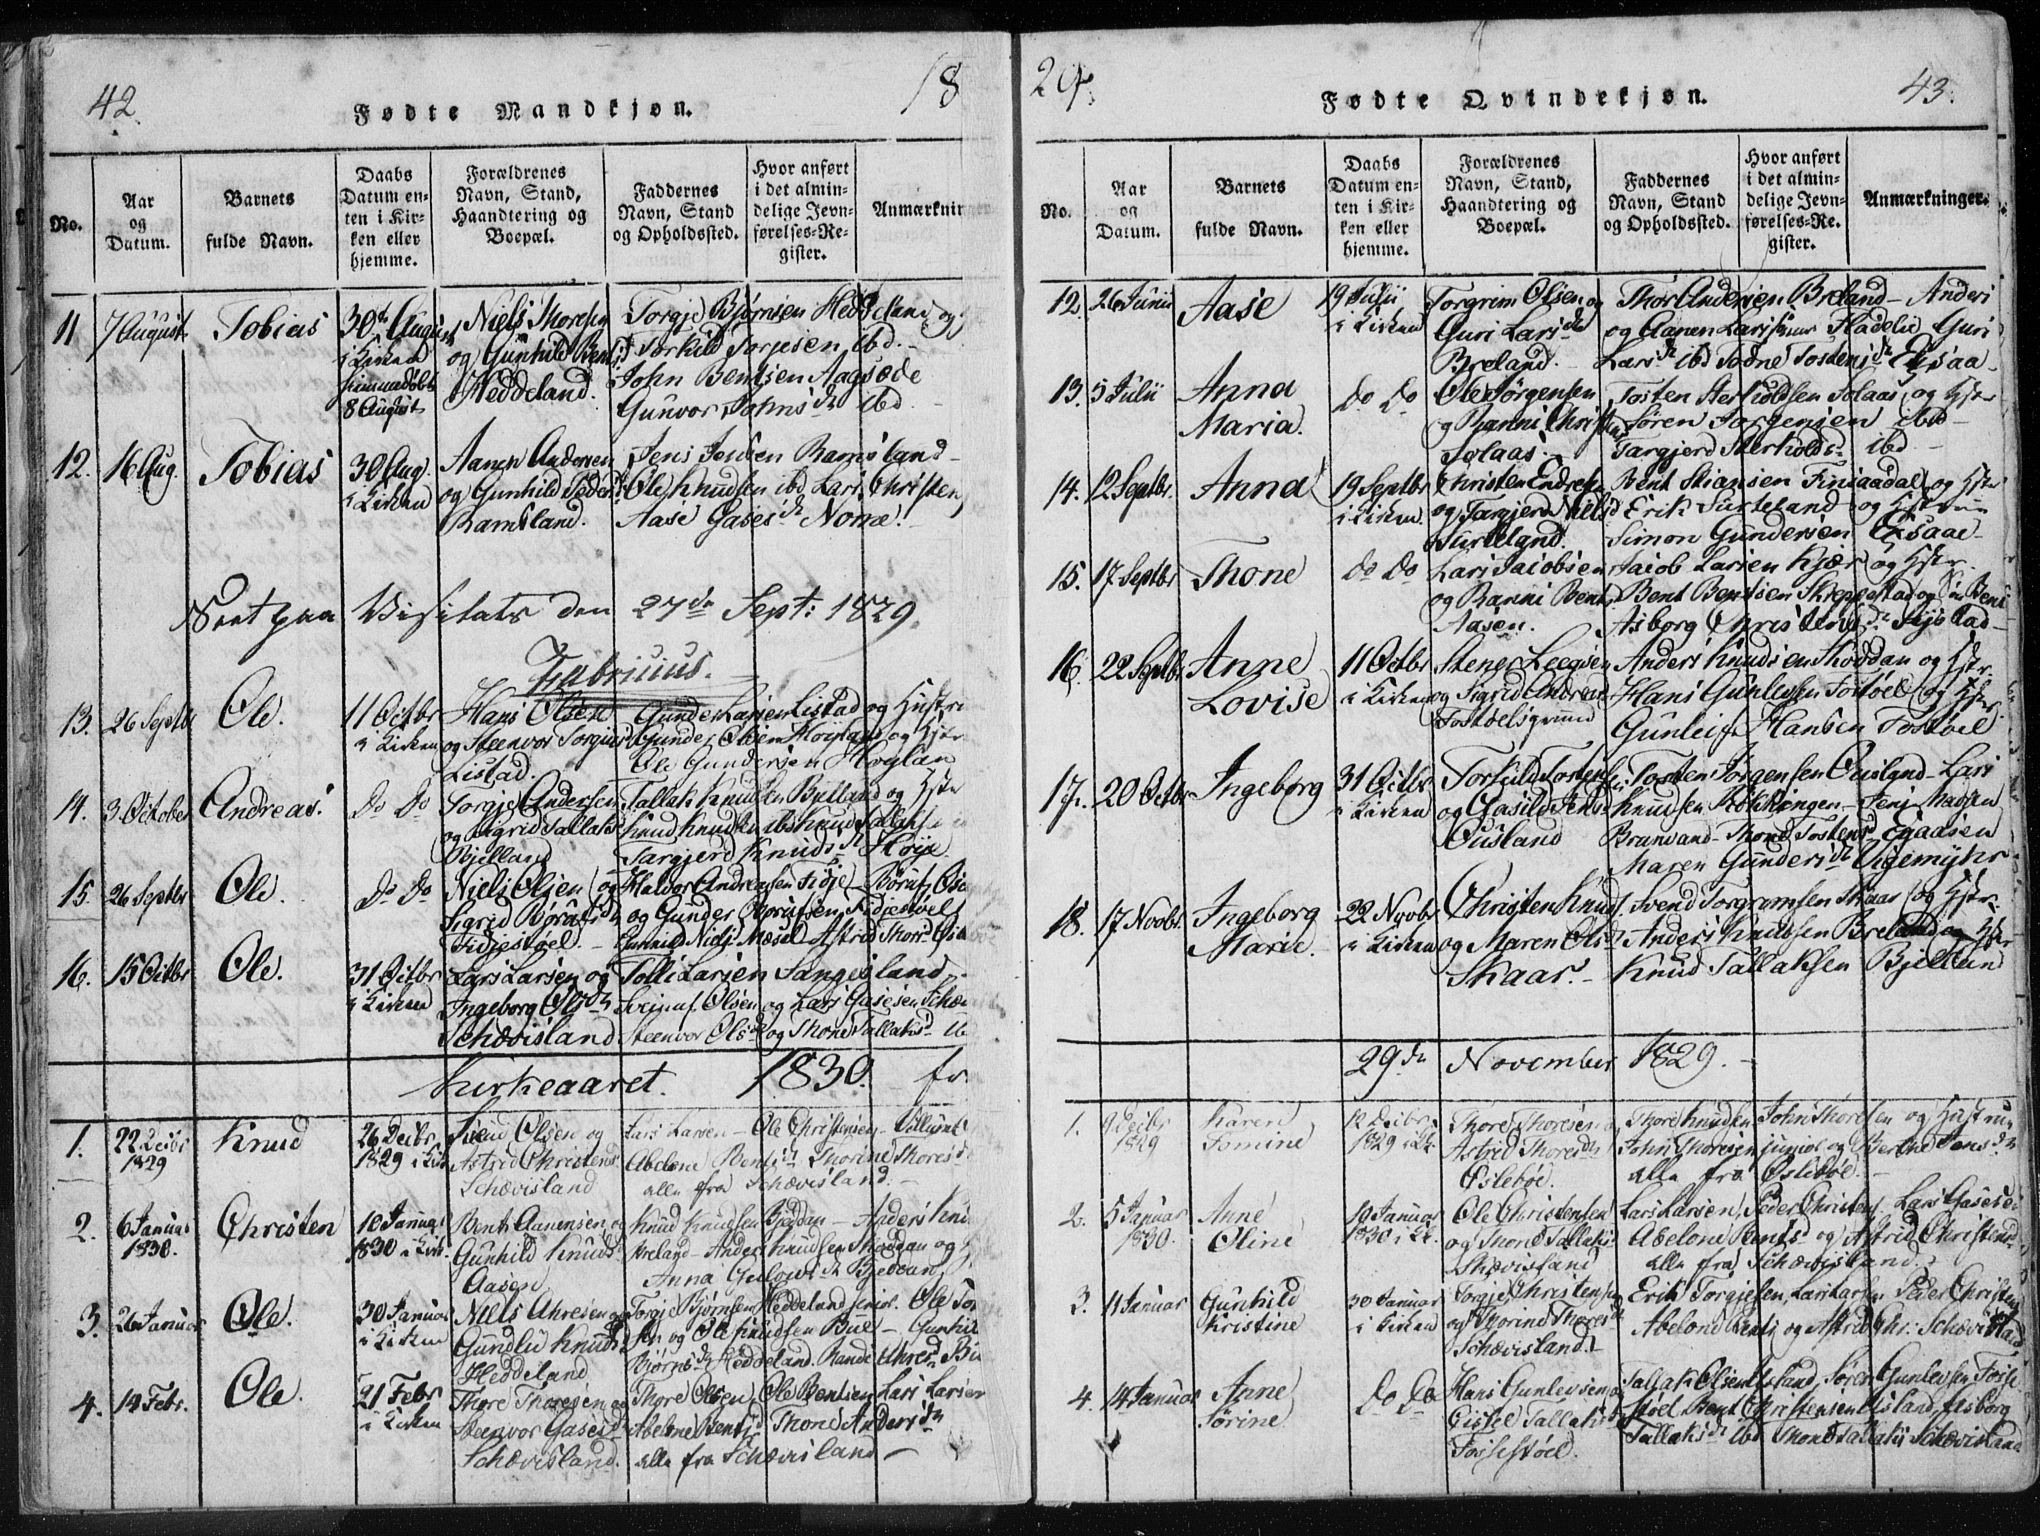 42.
Fødte Mandkjøn.
18
No.
Aar og Datum.
Barnets fulde Navn.
Daabs Datum enten i Kirken eller hjemme.
Forældrenes Navn, Stand, Haandtering og Boepæl.
Faddernes Navn, Stand og Opholdssted.
Hvor anført i det almindelige Jevnførelses-Register.
Anmærknin
11 7 August Tobias
30te August i Kirken hjemmedøbt 8 August
Niels Thoresen og Gunhild Bentsd Heddeland.
Torgje Bjørnsen Heddeland og
Torkild Torjesen ibd.
John Bentsen Aagsæde
Gunvor Johnsdr ibd
12. 16 Aug. Tobias
30 Aug. i Kirken
Aanen Andersen og Gunhild Pedersdr Ramsland.
Jens Jensen Ramsland
Ole Knudsen ibd Lars Christen
Aase Gasesdr Nome.
Seet paa Visitats den 27de Sept: 1829.
Fabricius.
13. 26 Septbr Ole.
11 Octbr i Kirken
Hans Olsen og Steenvor Torgiusd Listad.
Gunder Larsen Listad og Hustru
Gunder Olsen Høiland og Hstr
Ole Gundersen Høylan
14. 3 October Andreas.
Do Do
Torgje Andersen og Sigrid Tallaksd Bjelland
Tallak Knudsen Bjelland og Hstr
Knud Knudsen ibd Knud Tallaks
Targjerd Knudsdr Høye
15. 26 Septbr Ole.
Do Do
Niels Olsen og Sigrid Børufsdr Fidjestøel.
Haldor Andreasen Fidje
og Gunder Børufsen Fidjestøel
Gunnild Nielsd Mæsel Astrid Thorsd
16. 15 Octbr Ole.
31 Octbr i Kirken
Lars Larsen og Ingeborg Olsdr Schævisland
Tolli Larsen Sangesland
Olsen og Lars Gasesen
Steenvor Olsdr og Thone Tallaksd
Kirkeaaret. 1830. fr
1. 22 Decbr 1829 Knud
26 Decbr 1829 i Kirk
Svend Olsen og Astrid Christensd Schævisland
Lars Larsen Ole Christensen
Abelone Bentsd Thorine Thoresd
alle fra Schævisland.
2. 6 Januar 1830. Christen
10 Januar 1830 i Kirk.
Bent Aanensen og Gunhild Knudsd Aasen
Knud Knudsen Bjeddan Anders Knu
Breland Anders Knudsen Skoddan og
Anna Bjeddan
3. 26 Januar Ole.
30 Januar i Kirken
Niels Ahresen og Gundlid Knudsd Heddeland
Torgje Bjørnsen Heddeland senior. Ole Tor
sen og Ole Knudsen Bue Gunhild
Bjørnsdr Heddeland Rande Ahresd
4. 14 Febr. Ole.
21 Febr i Kirken
Thore Thoresen og Steenvor Gasesd Schævisland.
Thore Olsen, Ole Bentsen Lars Larsen
Abelone Bentsd Thone Andersdr
alle fra Schævisland
29.
Fødte Qvindekjøn.
43.
No.
Aar og Datum.
Barnets fulde Navn.
Daabs Datum enten i Kirken eller hjemme.
Forældrenes Navn, Stand, Haandtering og Boepæl.
Faddernes Navn, Stand og Opholdssted.
Hvor anført i det almindelige Jevnførelses-Register.
Anmærkninger.
12. 26 Junii Aase
19 Julii i Kirken
Torgrim Olsen og Guri Larsdr Breland.
Thor Andersen Breland Anders
og Aanen Larssønner Fladelie Guri
Larsdr ibd Todne Tostensdr Eigsaa
13. 5 Julii Anna Maria.
Do Do
Ole Jørgensen og Ranni Christensd Solaas.
Tosten Sterkoldsen Solaas og Hstr
Søren Jørgensen ibd
Targjerd Sterkoldsd ibd
14. 12 Septbr. Anna
19 Septbr i Kirken
Christen Endresen og Targjerd Nielsd Surteland.
Bent Stiansen Finsaadal og Hstr
Erik Surteland og Hstru
Simon Gundersen Eigsaae
15. 17 Septbr Thone
Do Do
Lars Jacobsen og Ranni Bentsd Aasen.
Jacob Larsen Kjær og Hstr.
Bent Bentsen Skeppestad og
Asborg Christensdr
16. 22 Septbr Anne Lovise
11 Octbr i Kirken
Stener Leegsen og Sigrid Andersd Fostøelsgrund
Anders Knudsen Skoddan og Hstr
Hans Gunlevsen Fostøel og Hstr
Gunleif Hansen Fostøel
17. 20 Octbr Ingeborg
31 Octbr i Kirken
Torkild Tostensen og Aasild Jensd Ousland
Tosten Jørgensen Ousland Lars
Knudsen Kølkningen Jens Madsen
Brandvand Thone Tostensd Egaasen
Maren Gundersdr Vigemyhr
18. 17 Novbr Ingeborg Marie.
22 Novbr i Kirken
Christen Knuds. og Maren Olsd Skaar.
Svend Torgrimsen Skaar og Hstr.
Anders Knudsen Breland og Hstr
Knud Tallaksen Bjelland
29de November 1829.
1. 9 Decbr 1829 Karen Tomine
12 Decbr 1829 i K.
Thore Thoresen og Astrid Thoresdr Øslebøe.
Thore Knudsen John Thoresen og Hustru
John Thoresen junior og Berthe Jensdr
alle fra Øslebøe.
2. 5 Januar 1830. Anne Oline
10 Januar 1830 i K.
Ole Christensen og Thone Tallaksd Skævisland
Lars Larsen, Peder Christens. Lars Gasesen
Abelone Bentsd og Astrid Christensd
alle fra Schævisland.
3. 11 Januar Gunhild Kristine
30 Januar i Kirken
Torgje Christensen og Thorine Thoresdr Schævisland.
Erik Torgjesen, Lars Larsen Peder Christens
Abelone Bentsd og Astrid Chr: Schævisland
4. 14 Januar Anne Sørine
Do Do
Hans Gunlevsen og Gissel Tallaksdr Fossestøel.
Tallak Olsen Usland, Søren Gunlevsen Fosse
støel Bent Christensen Usland, Asborg
Tallaksdr ibd Thone Tallaksd Schævisland